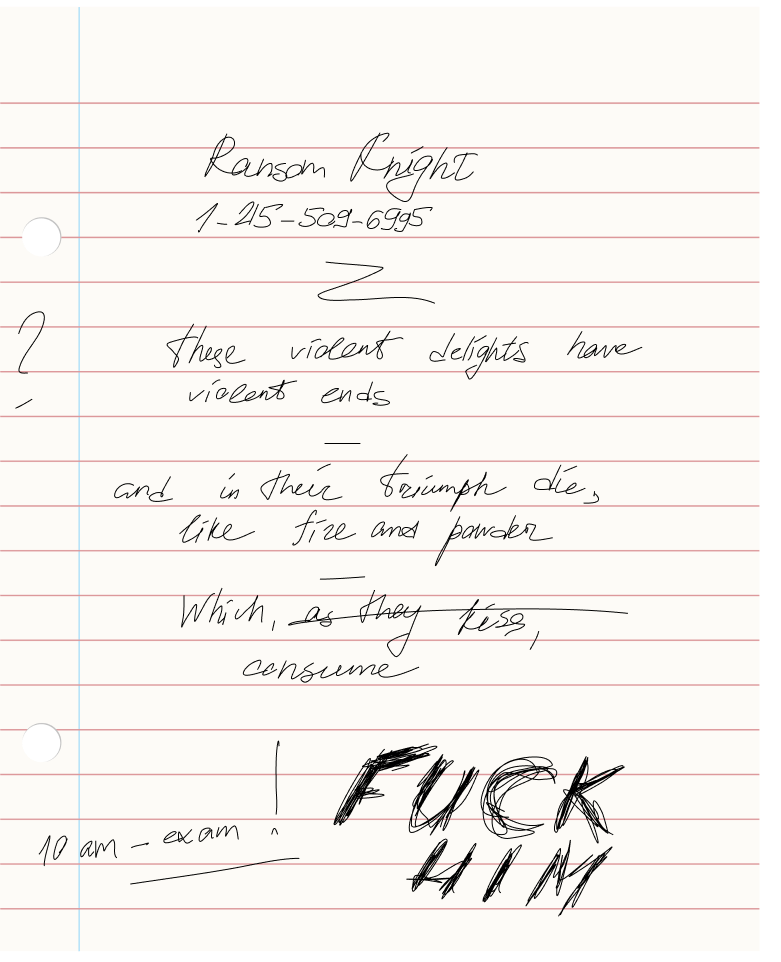 Ransom Knight
1-215-509-6995
?
these violent delights have
violent ends
—
and in their triumph die,
like fire and powder
—
Which, as they kiss,
consume
FUCK
10 am - exam !
HIM